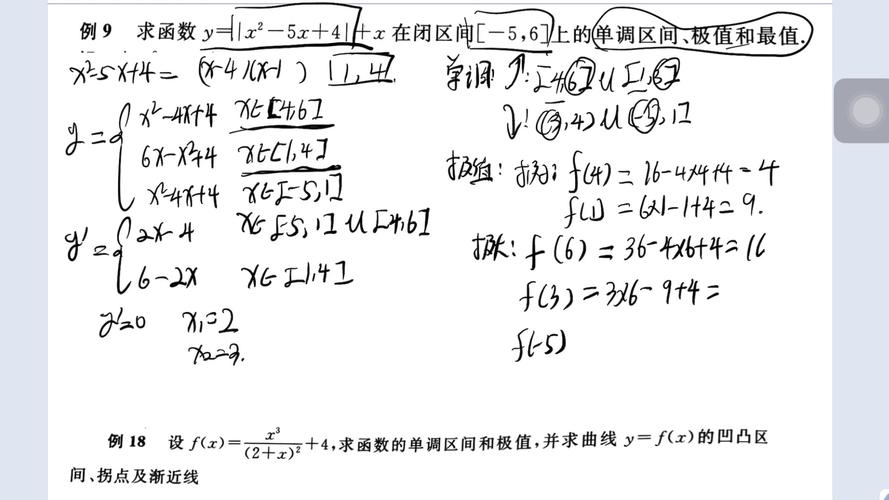 例 9 求函数 y=|x²-5x+4|+x 在闭区间[-5,6]上的单调区间、极值和最值.
x²-5x+4= (x-4)(x-1) [1,4]
y={ x²-4x+4 x∈[4,6]
6x-x²-4 x∈[1,4]
x²-4x+4 x∈[-5,1]
y'={ 2x-4 x∈[-5,1]∪[4,6]
6-2x x∈[1,4]
y'=0 x₁=2
x₂=3.
单调 ↑: [4,6]∪[1,3]
↓: (3,4)∪(-5,1]
极值: 极小: f(4)=16-4×4+4=4
f(1)=6×1-1+4=9.
极大: f(6)=36-4×6+4=16
f(3)=3×6-9+4=
f(-5)
例 18 设 f(x)=x³/(2+x)²+4,求函数的单调区间和极值,并求曲线 y=f(x)的凹凸区
间、拐点及渐近线